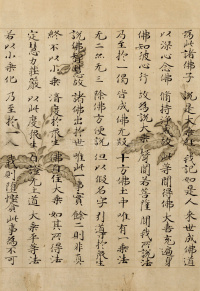 為此諸佛子 說是大乘經 我記如是人 來世成佛道
以深心念佛 修持淨戒故 此等聞得佛 大喜充遍身
佛知彼心行 故為說大乘 聲聞若菩薩 聞我所說法
乃至於一偈 皆成佛无疑 十方佛土中 唯有一乘法
无二亦无三 除佛方便說 但以假名字 引導於眾生
說佛智慧故 諸佛出於世 唯此一事實 餘二則非真
終不以小乘 濟度於眾生 佛自住大乘 如其所得法
定慧力莊嚴 以此度眾生 自證无上道 大乘平等法
若以小乘化 乃至於一人 我則墮慳貪 此事為不可